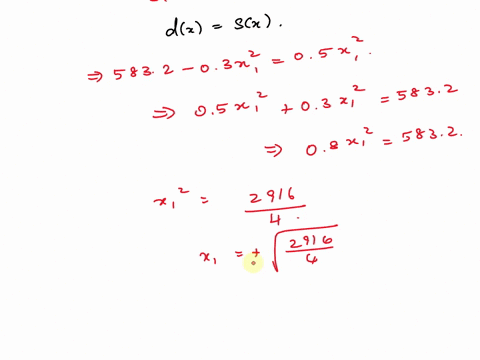 d(x) = S(x).
⇒ 583.2 - 0.3x₁² = 0.5x₁².
⇒ 0.5x₁² + 0.3x₁² = 583.2
⇒ 0.8x₁² = 583.2.
x₁² = 2916/4.
x₁ = + √(2916/4)